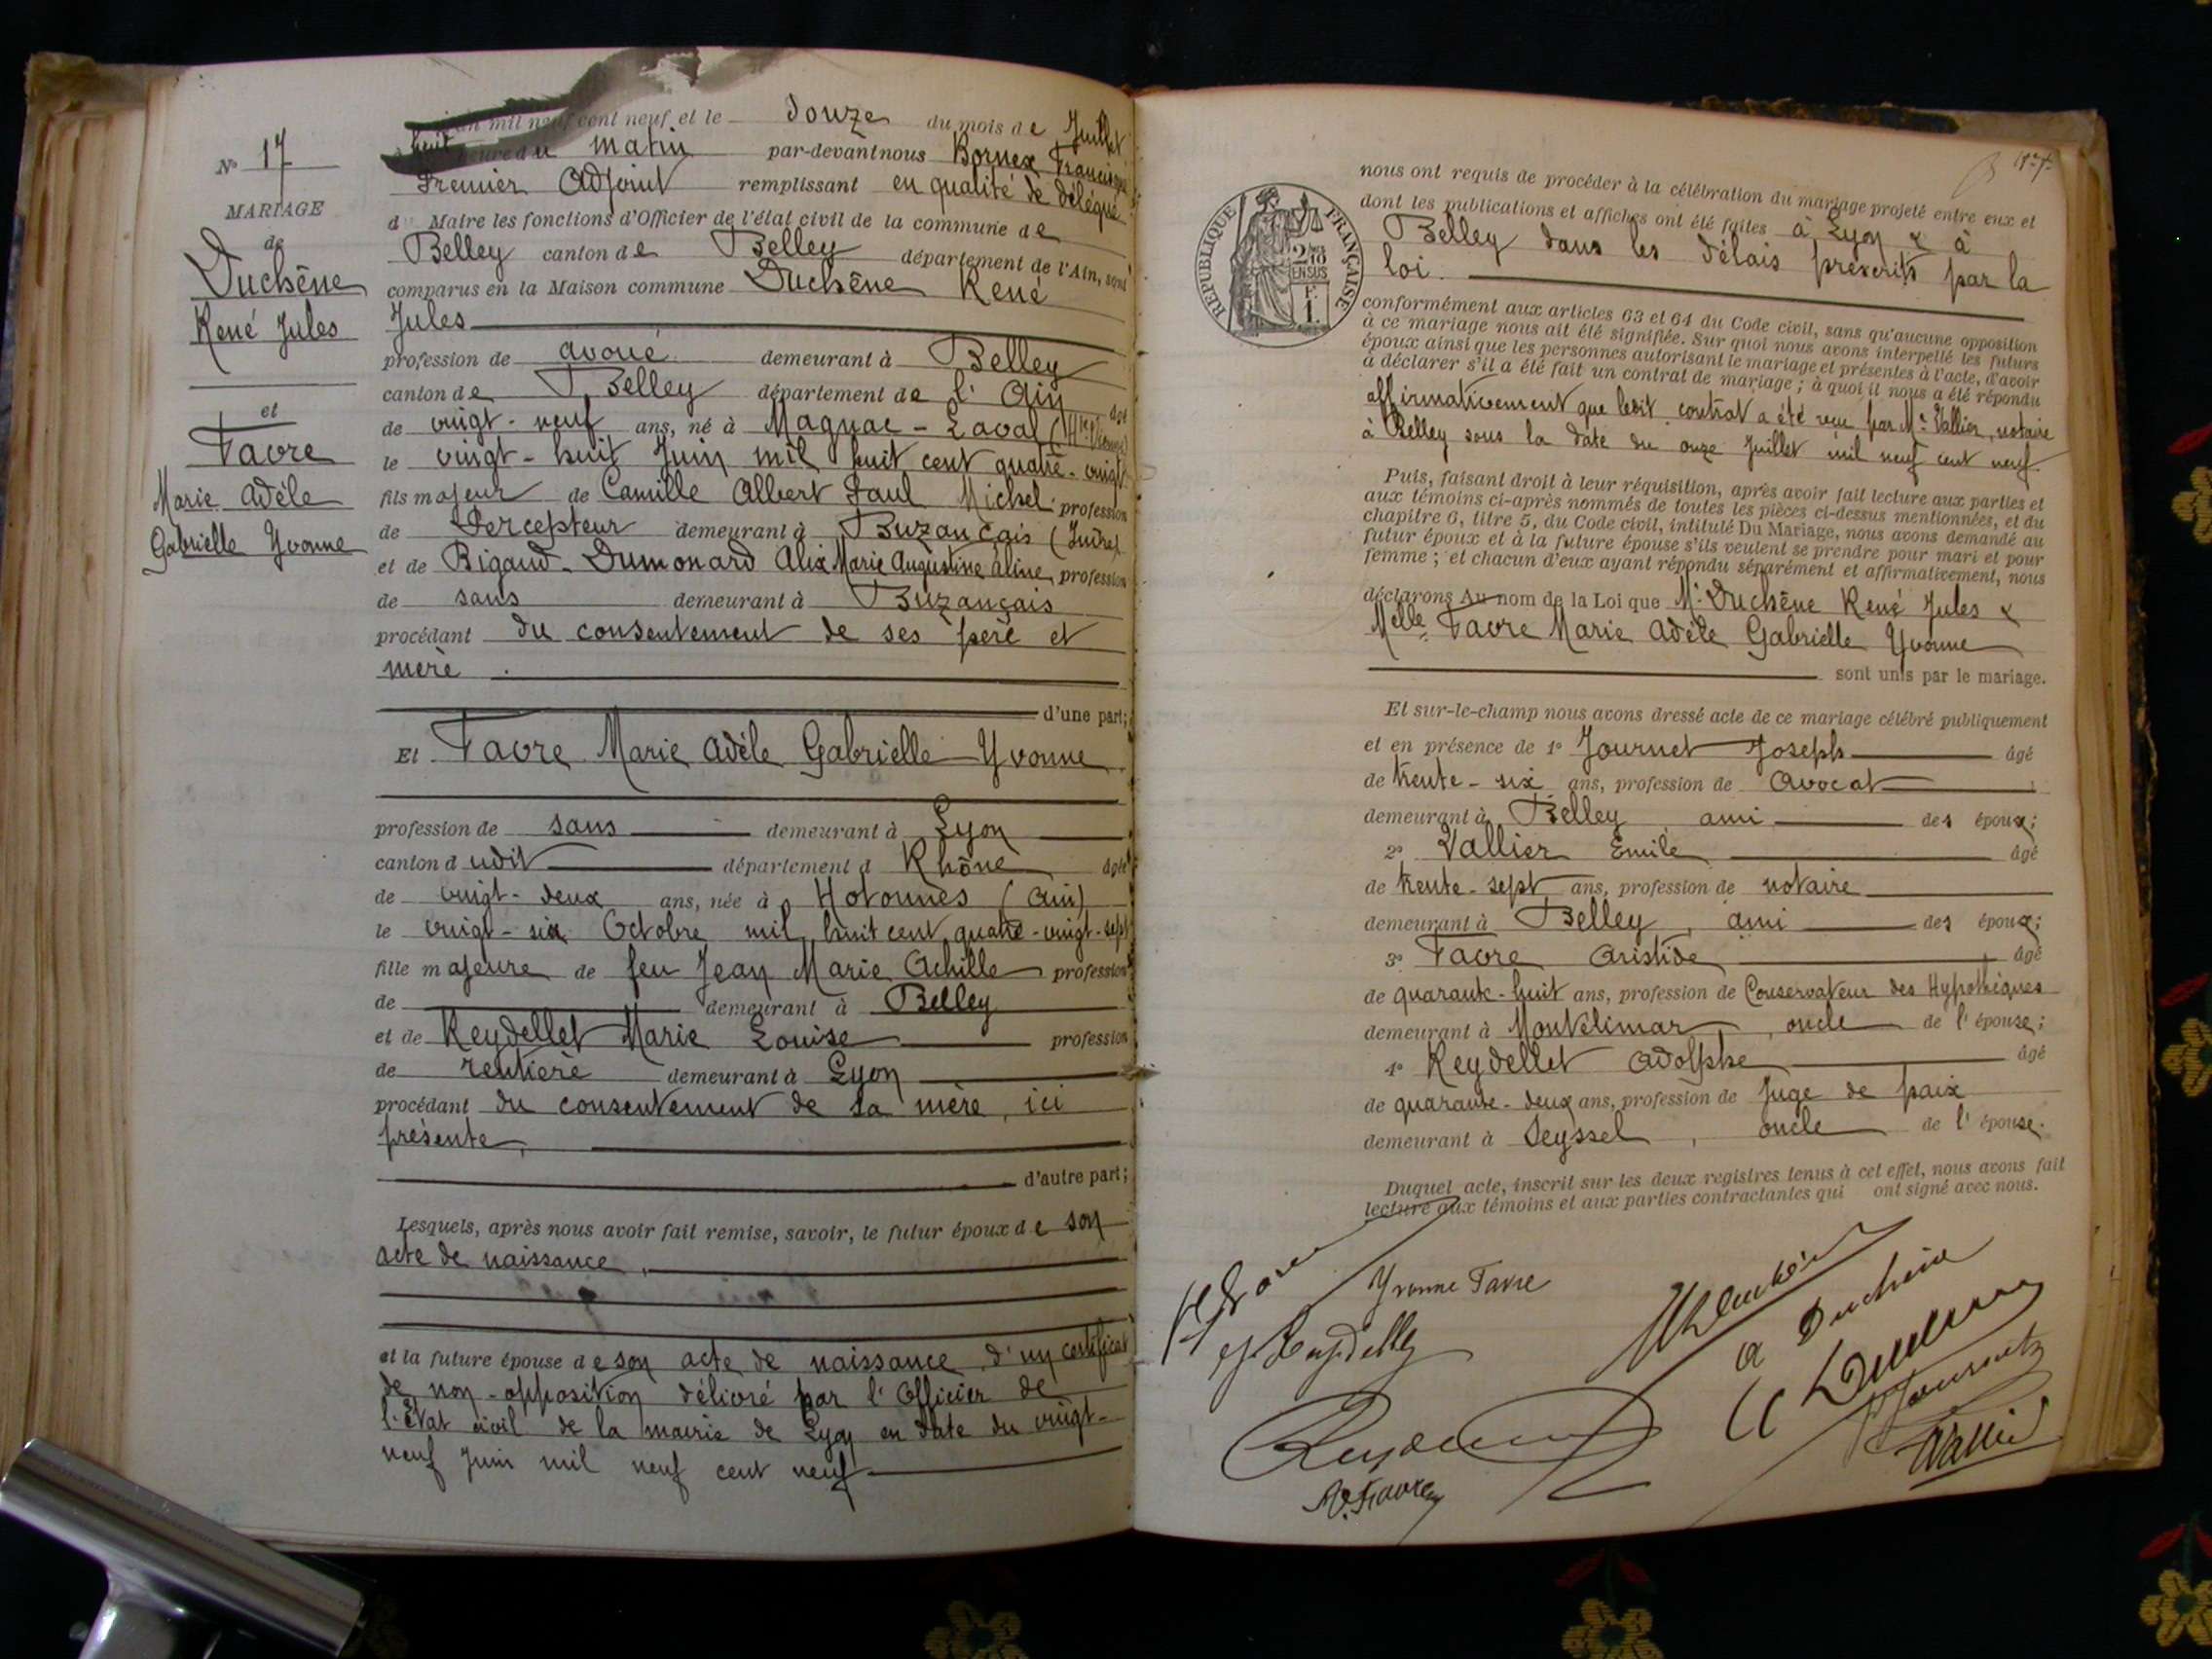 N° 17
MARIAGE
de
Duchêne
René Jules
et
Favre
Marie Adèle
Gabrielle Yvonne
an mil neuf cent neuf et le douze du mois de Juillet
huit heure du matin par-devant nous Bornex
Premier Adjoint remplissant en qualité de délégué
d Maire les fonctions d'Officier de l'état civil de la commune de
Belley canton de Belley département de l'Ain, sont
comparus en la Maison commune Duchêne René
Jules
profession de avoué demeurant à Belley
canton de Belley département de l'Ain âgé
de vingt-neuf ans, né à Magnac-Laval (Hte Vienne)
le vingt-huit Juin mil huit cent quatre-vingt
fils majeur de Camille Albert Paul Michel profession
de Percepteur demeurant à Buzançais (Indre)
et de Bigaud-Dumonard Alix Marie Augustine Aline, profession
de sans demeurant à Buzançais
procédant du consentement de ses père et
mère.
d'une part;
Et Favre Marie Adèle Gabrielle Yvonne
profession de sans demeurant à Lyon
canton dudit département d Rhône âgée
de vingt-deux ans, née à Hotonnes (Ain)
le vingt-six Octobre mil huit cent quatre-vingt-sept
fille majeure de feu Jean Marie Achille profession
de demeurant à Belley
et de Keydellet Marie Louise profession
de rentière demeurant à Lyon
procédant du consentement de sa mère, ici
présente,
d'autre part;
Lesquels, après nous avoir fait remise, savoir, le futur époux de son
acte de naissance,
et la future épouse de son acte de naissance d'un certificat
de non-opposition délivré par l'Officier de
l'État civil de la mairie de Lyon en date du vingt-
neuf Juin mil neuf cent neuf
RÉPUBLIQUE FRANÇAISE
2/10
EN SUS
F
1.
nous ont requis de procéder à la célébration du mariage projeté entre eux et
dont les publications et affiches ont été faites à Lyon & à
Belley dans les délais prescrits par la
loi.
conformément aux articles 63 et 64 du Code civil, sans qu'aucune opposition
à ce mariage nous ait été signifiée. Sur quoi nous avons interpellé les futurs
époux ainsi que les personnes autorisant le mariage et présentes à l'acte, d'avoir
à déclarer s'il a été fait un contrat de mariage; à quoi il nous a été répondu
affirmativement que ledit contrat a été reçu par Me Vallier, notaire
à Belley sous la date du onze Juillet mil neuf cent neuf.
Puis, faisant droit à leur réquisition, après avoir fait lecture aux parties et
aux témoins ci-après nommés de toutes les pièces ci-dessus mentionnées, et du
chapitre 6, titre 5, du Code civil, intitulé Du Mariage, nous avons demandé au
futur époux et à la future épouse s'ils veulent se prendre pour mari et pour
femme; et chacun d'eux ayant répondu séparément et affirmativement, nous
déclarons Au nom de la Loi que Mr Duchêne René Jules &
Melle Favre Marie Adèle Gabrielle Yvonne
sont unis par le mariage.
Et sur-le-champ nous avons dressé acte de ce mariage célébré publiquement
et en présence de 1° Journet Joseph âgé
de trente-six ans, profession de Avocat
demeurant à Belley ami des époux;
2° Vallier Emile âgé
de trente-sept ans, profession de notaire
demeurant à Belley, ami des époux;
3° Favre Aristide âgé
de quarante-huit ans, profession de Conservateur des Hypothèques
demeurant à Montélimar, oncle de l'épouse;
4° Keydellet Adolphe âgé
de quarante-deux ans, profession de Juge de paix
demeurant à Seyssel, oncle de l'épouse.
Duquel acte, inscrit sur les deux registres tenus à cet effet, nous avons fait
lecture aux témoins et aux parties contractantes qui ont signé avec nous.
Yvonne Favre
a Duchêne
Vallier